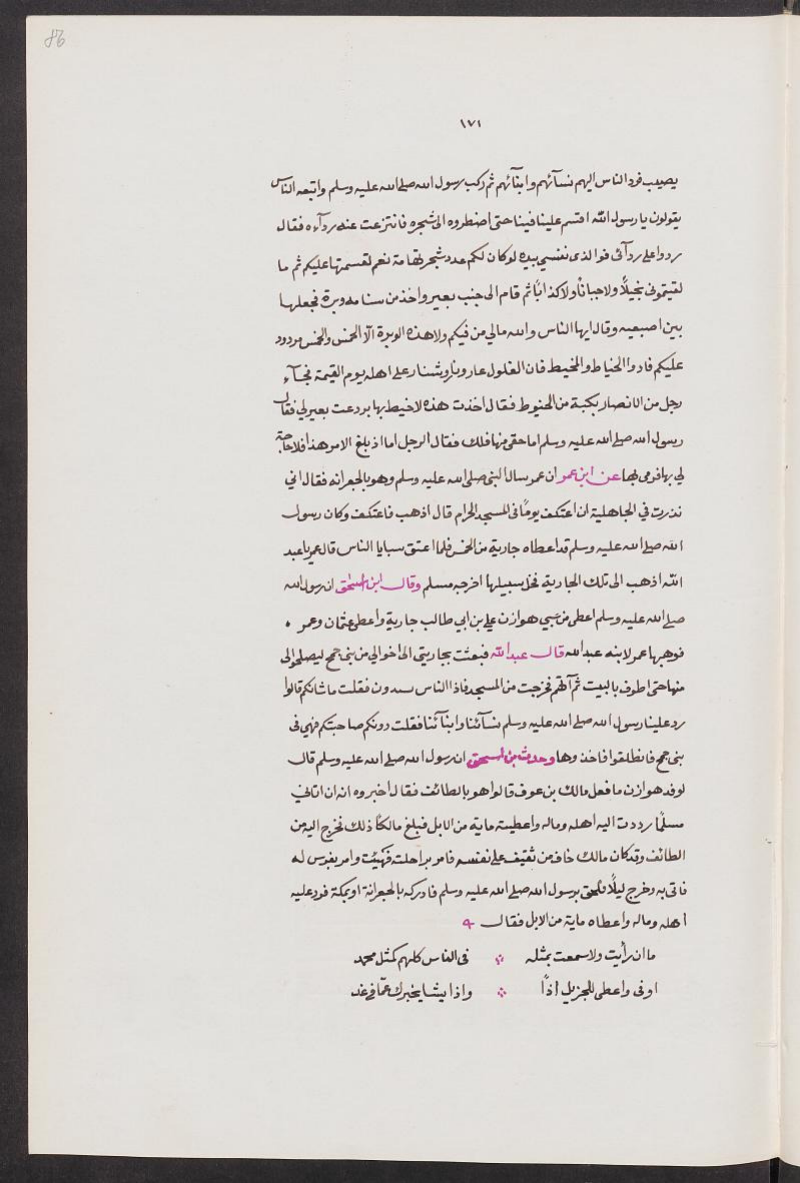 86
١٧١
يصيب فرد الناس اليهم نسآئهم وابنآئهم ثم ركب رسول الله صلى الله عليه وسلم واتبعه الناس
يقولون يا رسول الله اقسم علينا فيناحتى اضطروه الى شجره فانتزعت عنه ردآءه فقال
ردوا على ردآئى فوالذى نفسي بيده لوكان لكم عدد شجر تهامة نعم لقسمتها عليكم ثم ما
لقيتمونى بخيلاً ولا جباناً ولا كذاباً ثم قام الى جنب بعير واخذ من سنامه وبرة فجعلها
بين اصبعيه وقال ايها الناس والله مالي من فيكم ولا هذه الوبرة الا الخمس والخمس مردود
عليكم فادوا الخياط والمخيط فان الغلول عار ونار وشنار على اهله يوم القيمة فجآء
رجل من الانصار بكبة من الخيوط فقال اخذت هذه لاخيط بها بردعت بعير لي فقال
رسول الله صلى الله عليه وسلم اما حقى منها فلك فقال الرجل اما اذ بلغ الامر هذا فلا حاجة
لي بها فرمى بها عن ابن عمر ان عمر سال النبى صلى الله عليه وسلم وهو بالجعرانه فقال انى
نذرت في الجاهلية ان اعتكف يوماً فى المسجد الحرام قال اذهب فاعتكف وكان رسول
الله صلى الله عليه وسلم قد اعطاه جارية من الخمس فلما اعتق سبايا الناس قال عمر يا عبد
الله اذهب الى تلك الجارية فخل سبيلها اخرجه مسلم وقال ابن اسحق ان رسول الله
صلى الله عليه وسلم اعطى من سبي هوازن علي بن ابي طالب جارية واعطى عثمان وعمر .
فوهبها عمر لابنه عبد الله قال عبد الله فبعثت بجاريتي الى اخوالي من بنى جمح ليصلحوا لى
منها حتى اطوف بالبيت ثم آتهم فخرجت من المسجد فاذا الناس يشتدون فقلت ما شانكم قالوا
رد علينا رسول الله صلى الله عليه وسلم نسآئنا وابنآئنا فقلت دونكم صاحبتكم فهي فى
بنى جمح فانطلقوا فاخذوها وحدث بن اسحق ان رسول الله صلى الله عليه وسلم قال
لوفد هوازن ما فعل مالك بن عوف قالوا هو بالطائف فقال اخبروه انه ان اتاني
مسلماً رددت اليه اهله وماله واعطيته ماية من الابل فبلغ مالكاً ذلك فخرج اليه من
الطائف وقد كان مالك خاف من ثقيف على نفسه فامر براحلته فهيئت وامر بفرس له
فاتى به وخرج ليلاً فلحق برسول الله صلى الله عليه وسلم فادركه بالجعرانة او بمكة فرد عليه
اهله وماله واعطاه ماية من الابل فقال
ما ان رأيت ولا سمعت بمثله فى الناس كلهم كمثل محمد
اوفى واعطى للجزيل اذاً واذا يشا يخبرك عمّا فى غد